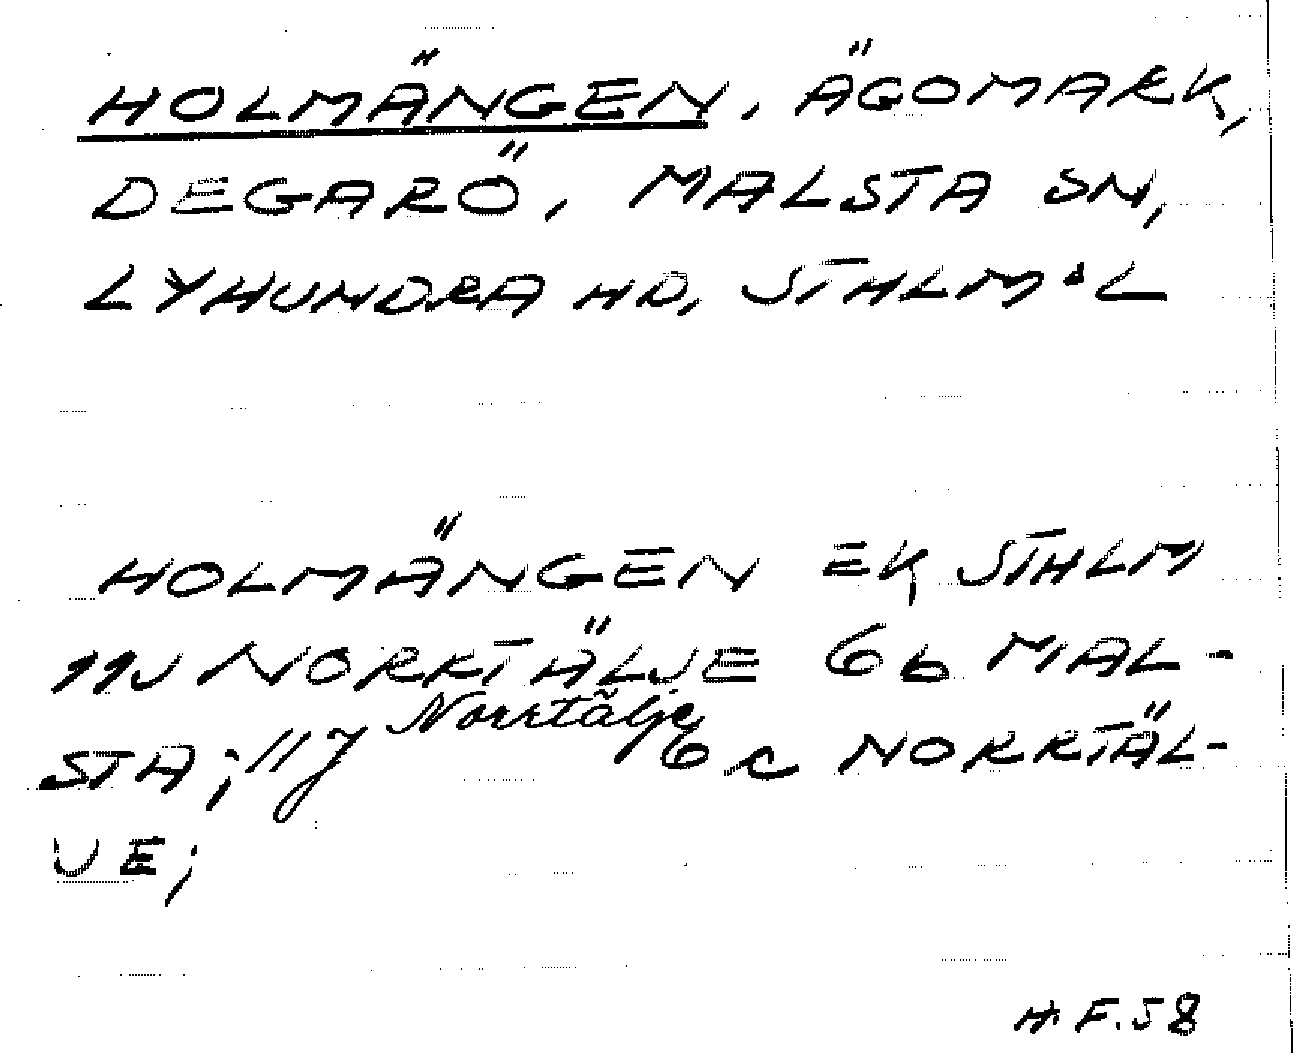 HOLMÄNGEN, ÄGOMARK,
DEGARÖ, MALSTA SN,
LYHUNDRA HD, STHLM·L
HOLMÄNGEN EK STHLM
11J NORRTÄLJE 6b MAL-
STA; 11J Norrtälje 6c NORRTÄL-
JE;
H.F.58